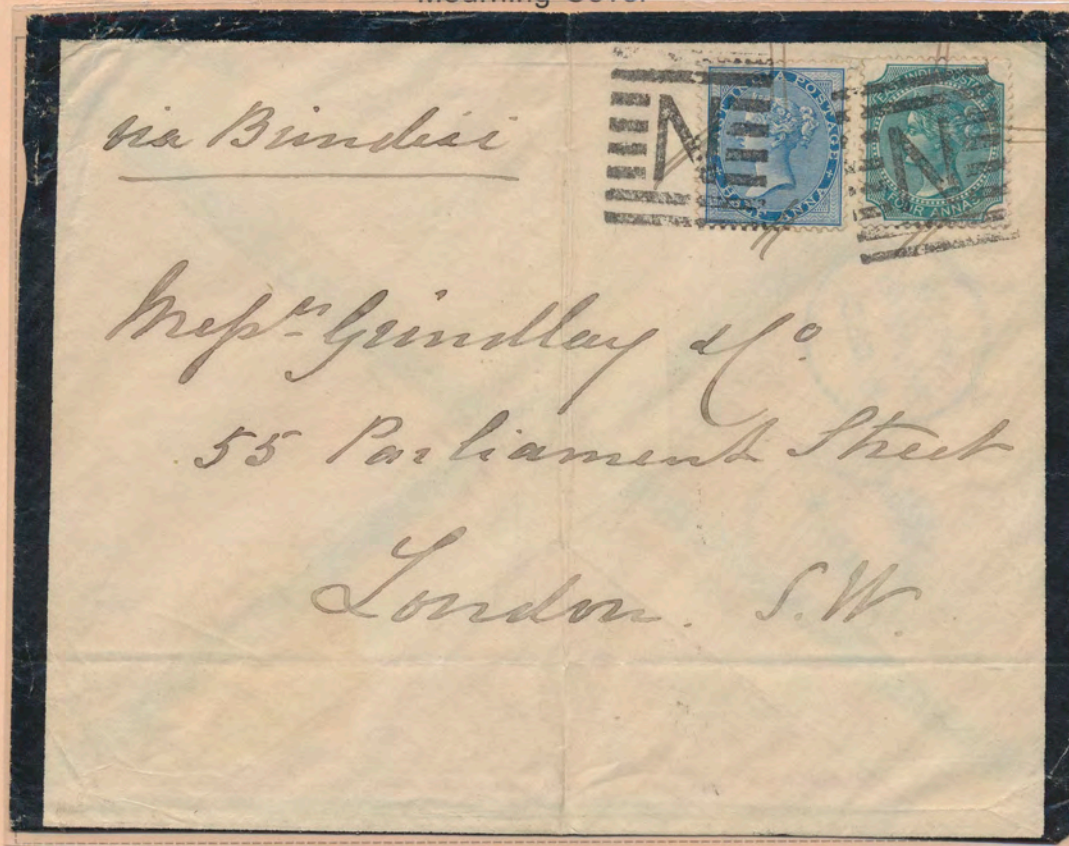 Mourning Cover
via Brindisi
INDIA POSTAGE
HALF ANNA
EAST INDIA POSTAGE
FOUR ANNAS
N
N
Messrs Grindlay & Co
55 Parliament Street
London. S.W.